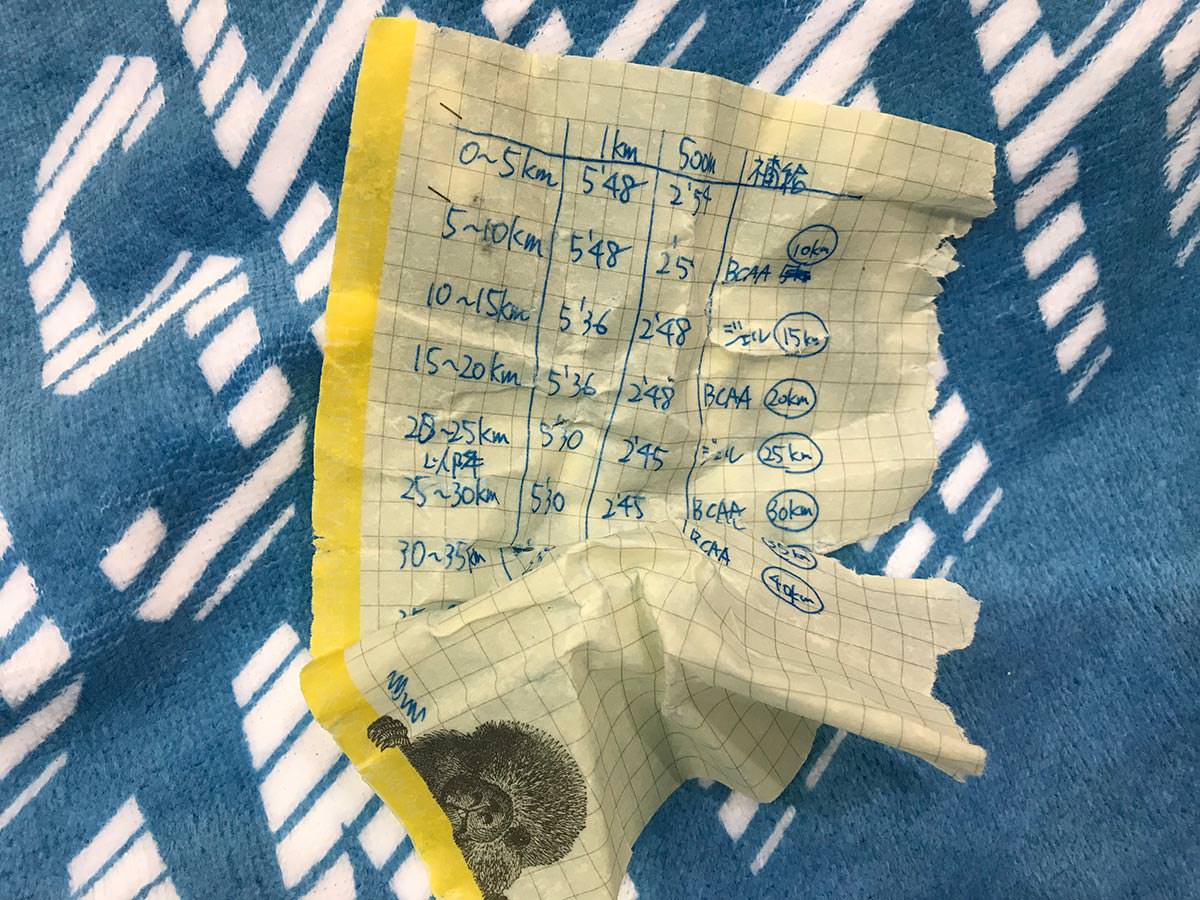 1km 500m 補給
0~5km 5'48 2'54
10km
5~10km 5'48 2'5 BCAA
10~15km 5'36 2'48 ジェル 15km
15~20km 5'36 2'48 BCAA 20km
20~25km 5'30 2'45 ジェル 25km
以降
25~30km 5'30 2'45 BCAA 30km
30~35km BCAA
40km